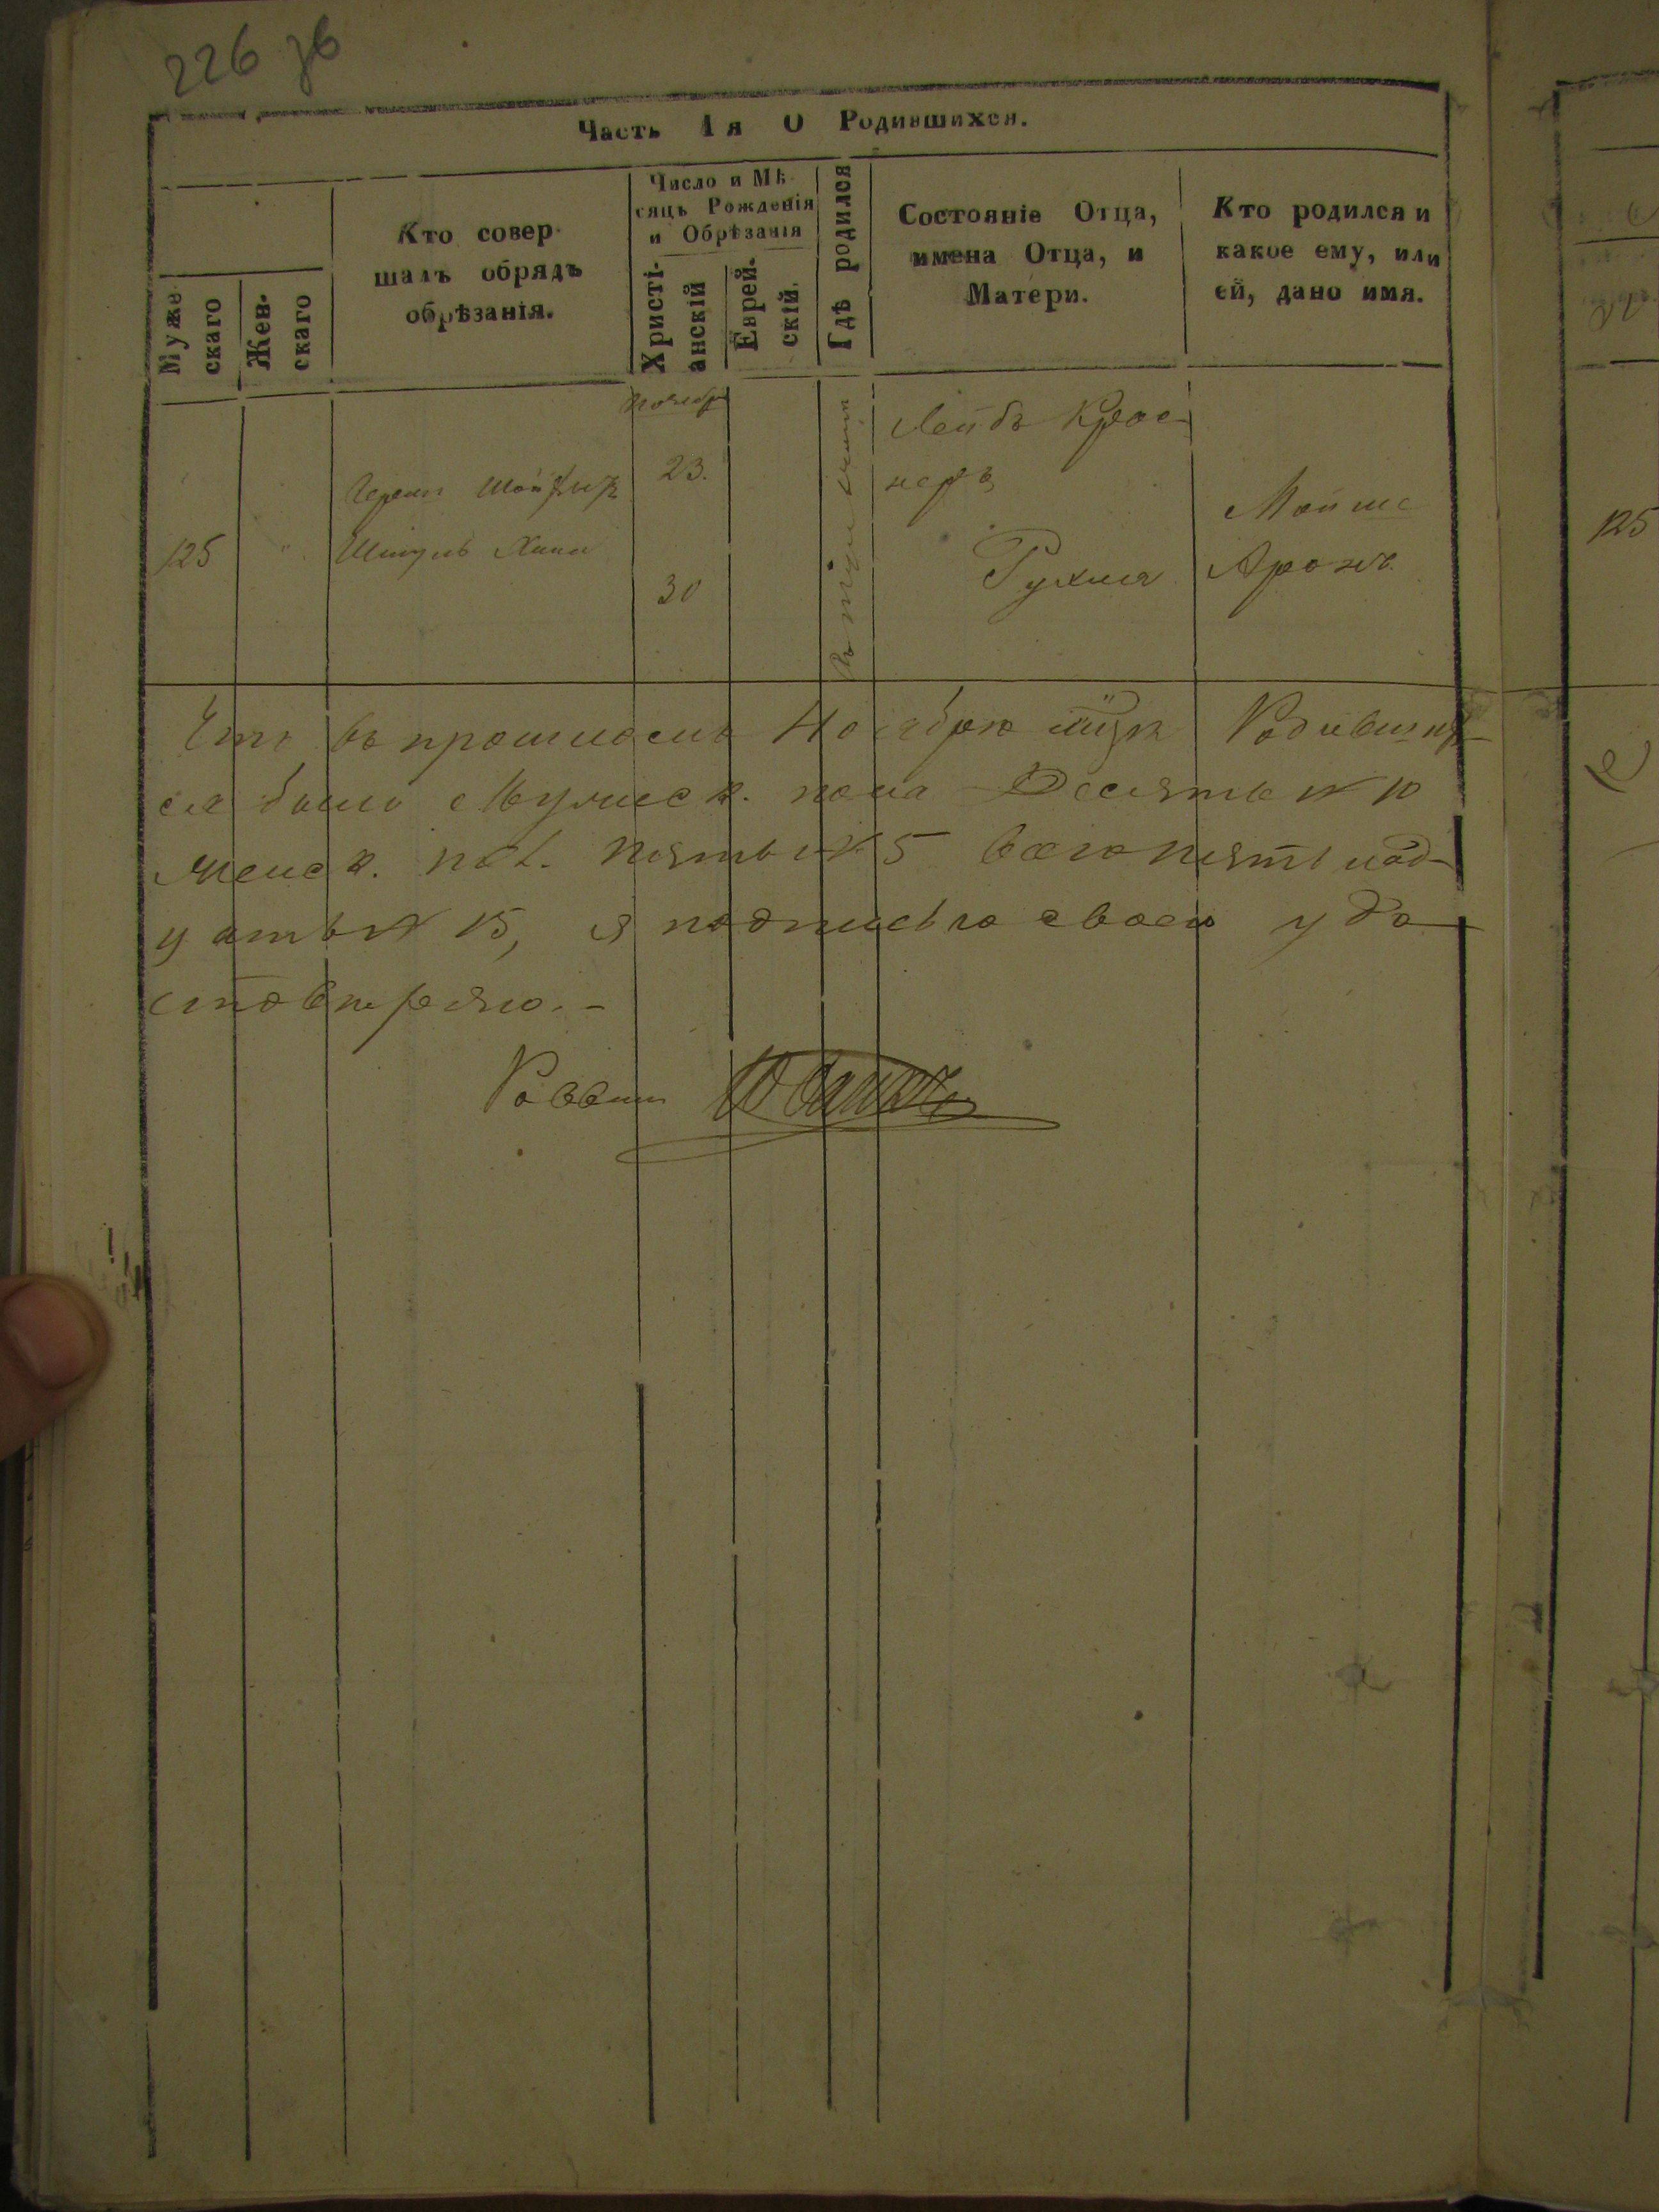 226 зв
Часть 1я О Родившихся.
Муже
скаго
Жен-
скаго
Кто совер
шалъ обрядъ
обрѣзанія.
Число и Мѣ
сяцъ Рожденія
и Обрѣзанія
Христі-
анскій
Еврей-
скій.
Гдѣ родился
Состояніе Отца,
имена Отца, и
Матери.
Кто родился и
какое ему, или
ей, дано имя.
125
"
Шмуль
Ноябр
23.
30
Лейбъ Крас-
неръ
Рухля
Мойше
Аронъ.
125
Что въ прошломъ Ноябрѣ Родивших-
ся было Мужеск. пола Десять № 10
женск. пол. пять № 5 всего пятнад-
цать № 15, я подписью своею удо
стовѣряю.-
Раввин